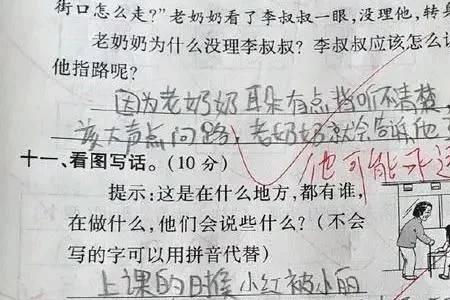 街口怎么走?”老奶奶看了李叔叔一眼,没理他,转身
老奶奶为什么没理李叔叔?李叔叔应该怎么
他指路呢?
因为老奶奶耳朵有点
听不清楚
该大声点问路,老奶奶就会告诉他了
他可能不
十一、看图写话。(10分)
提示:这是在什么地方,都有谁,
在做什么,他们会说些什么?(不会
写的字可以用拼音代替)
上课的时候小红被小丽